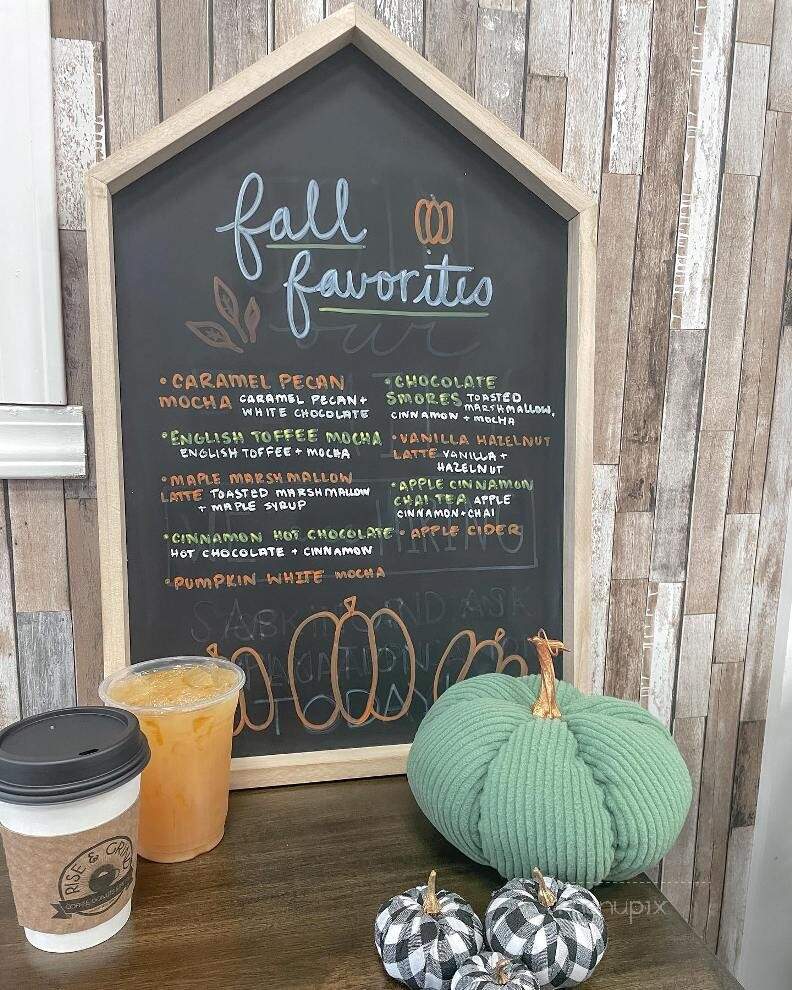 fall
favorites
• CARAMEL PECAN
MOCHA CARAMEL PECAN +
WHITE CHOCOLATE
• ENGLISH TOFFEE MOCHA
ENGLISH TOFFEE + MOCHA
• MAPLE MARSHMALLOW
LATTE TOASTED MARSHMALLOW
+ MAPLE SYRUP
• CINNAMON HOT CHOCOLATE
HOT CHOCOLATE + CINNAMON
• PUMPKIN WHITE MOCHA
• CHOCOLATE
SMORES TOASTED
MARSHMALLOW,
CINNAMON + MOCHA
• VANILLA HAZELNUT
LATTE VANILLA +
HAZELNUT
• APPLE CINNAMON
CHAI TEA APPLE
CINNAMON + CHAI
• APPLE CIDER
our
HIRING
AND ASK
TODAY
RISE & GRIND